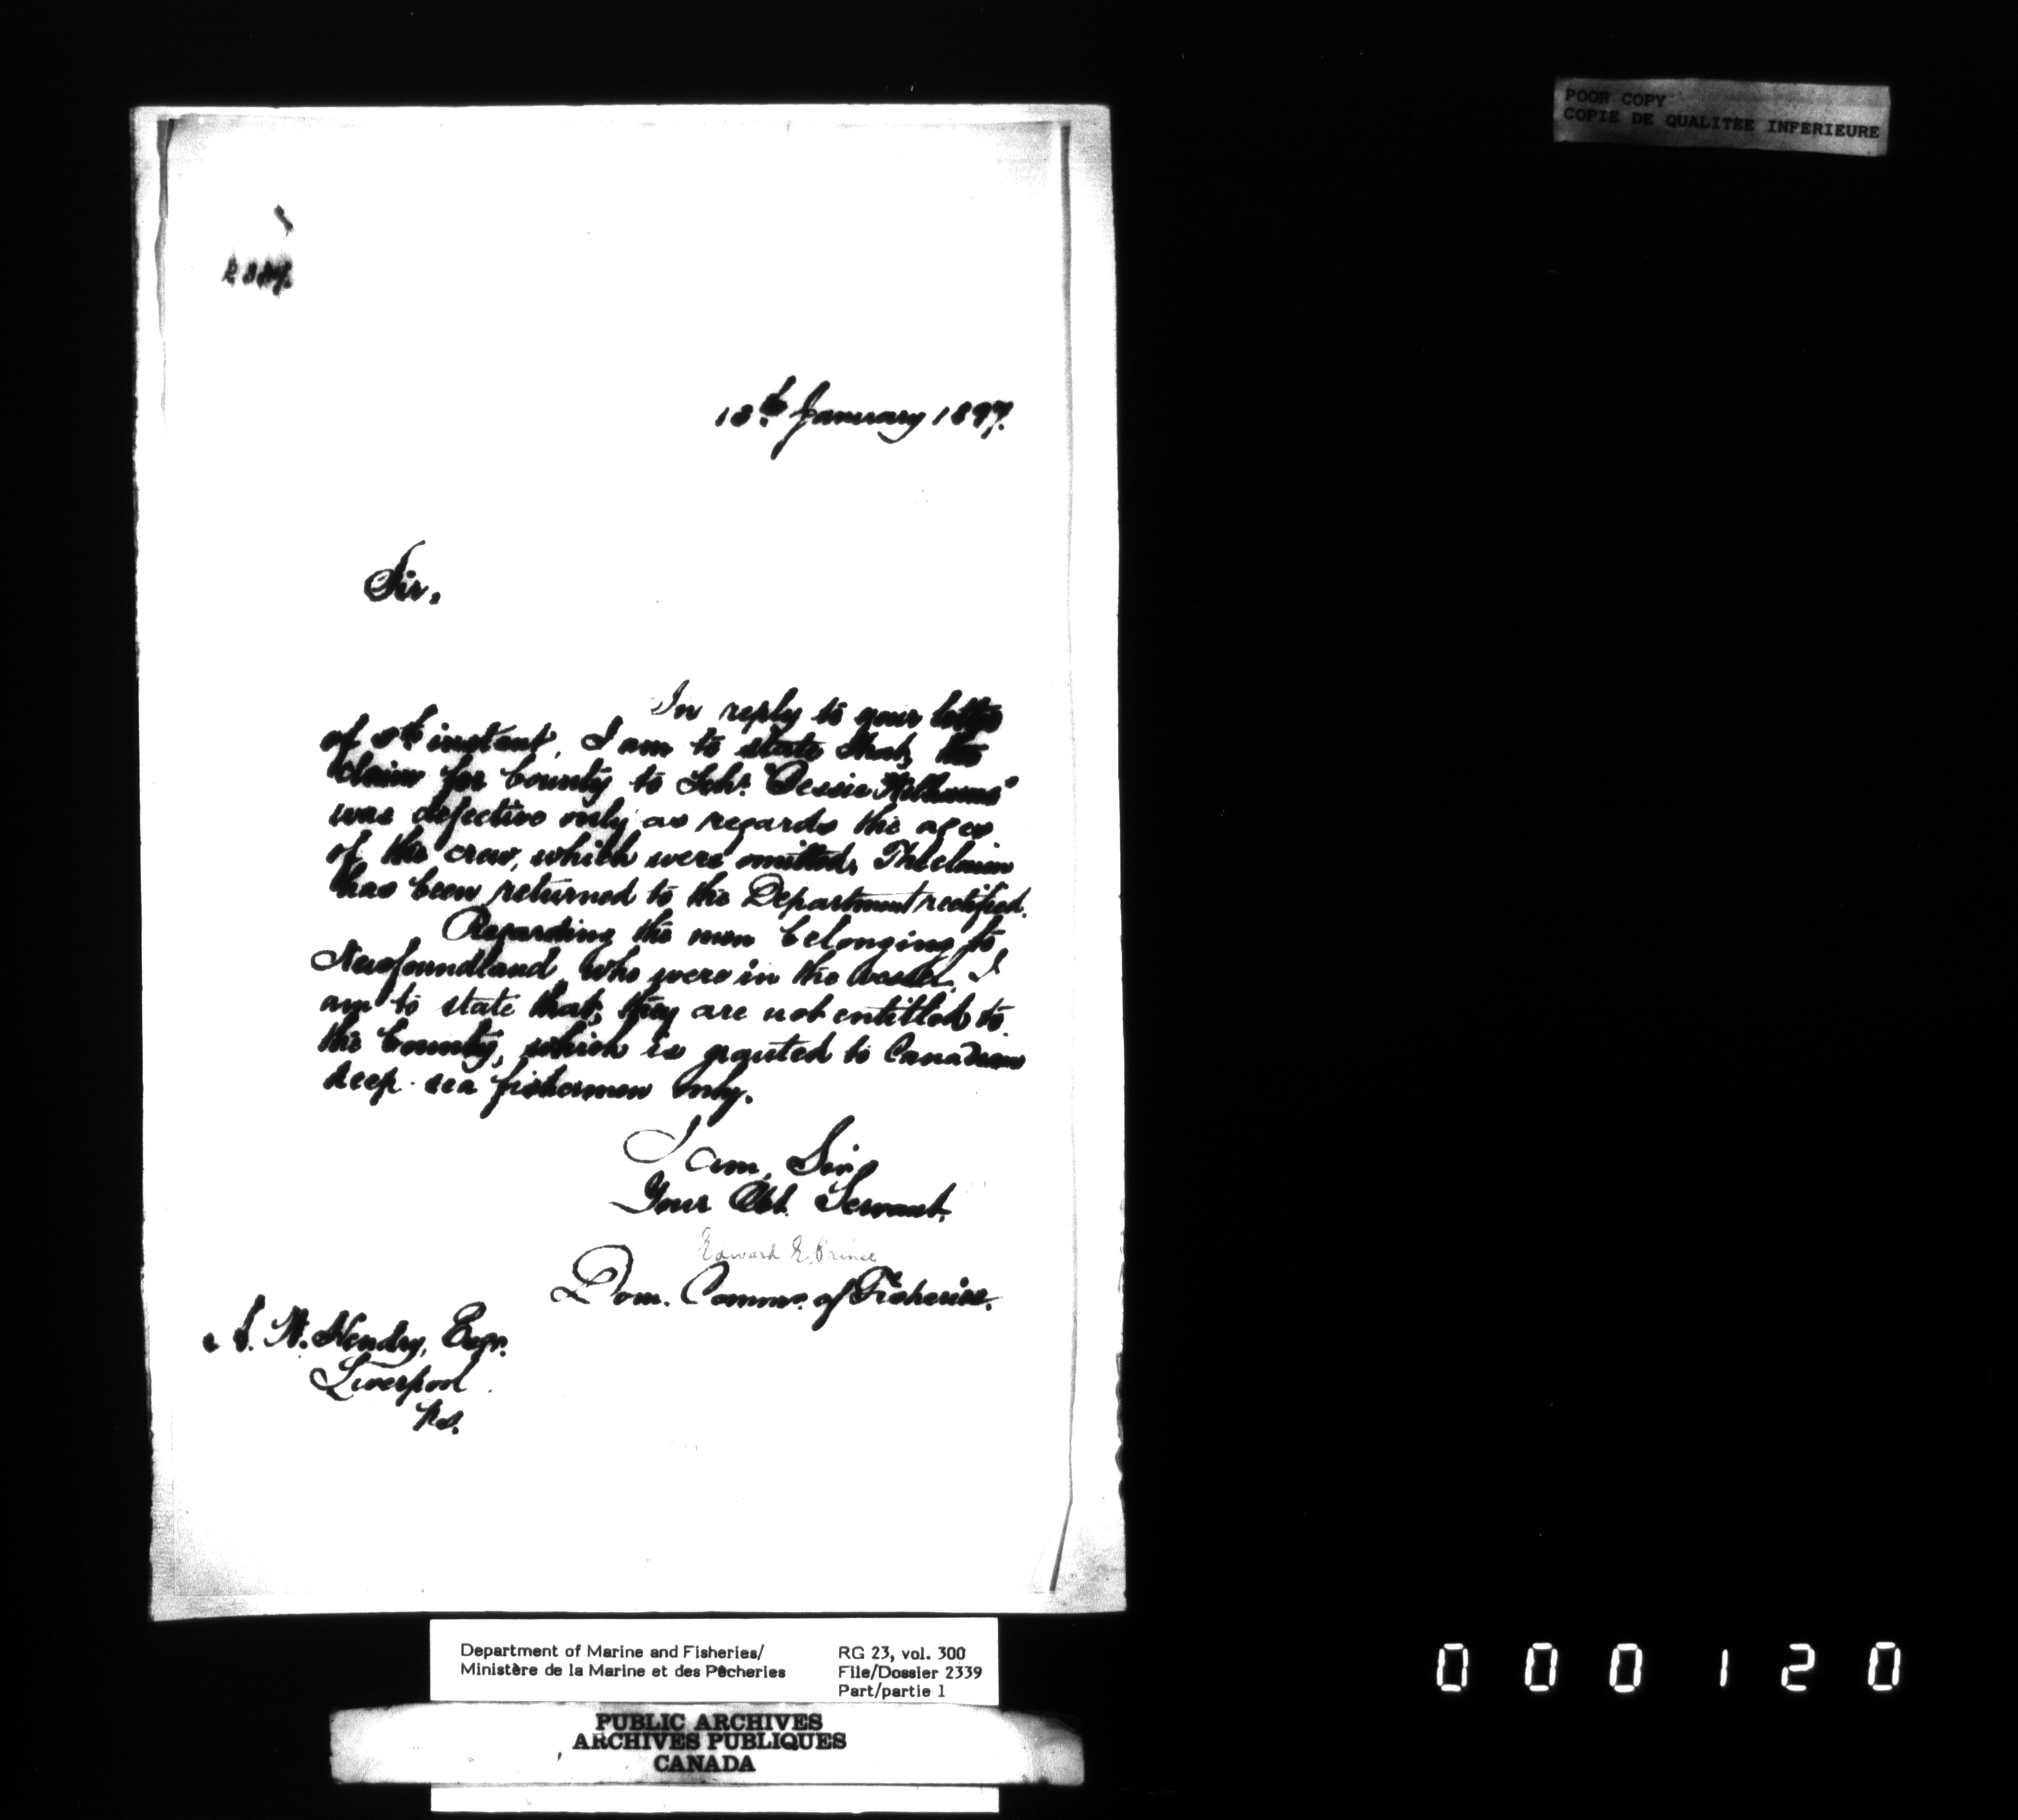 POOR COPY
COPIE DE QUALITEE INFERIEURE
18th January 1897.
Sir,
In reply to your letter
of 8th instant, I am to state that, the
claim for bounty to Schr. "Bessie
was defective only as regards the ages
of the crew, which were omitted. The claim
has been returned to the Department rectified.
Regarding the men belonging to
Newfoundland who were in the vessel, I
am to state that, they are not entitled to
the bounty, which is granted to Canadian
deep-sea fishermen only.
I am, Sir,
Your Obt. Servant,
Edward E. Prince
Dom. Commr. of Fisheries.
Hendry, Esqr.
Liverpool
N.S.
Department of Marine and Fisheries/
Ministère de la Marine et des Pêcheries
RG 23, vol. 300
File/Dossier 2339
Part/partie 1
PUBLIC ARCHIVES
ARCHIVES PUBLIQUES
CANADA
000120